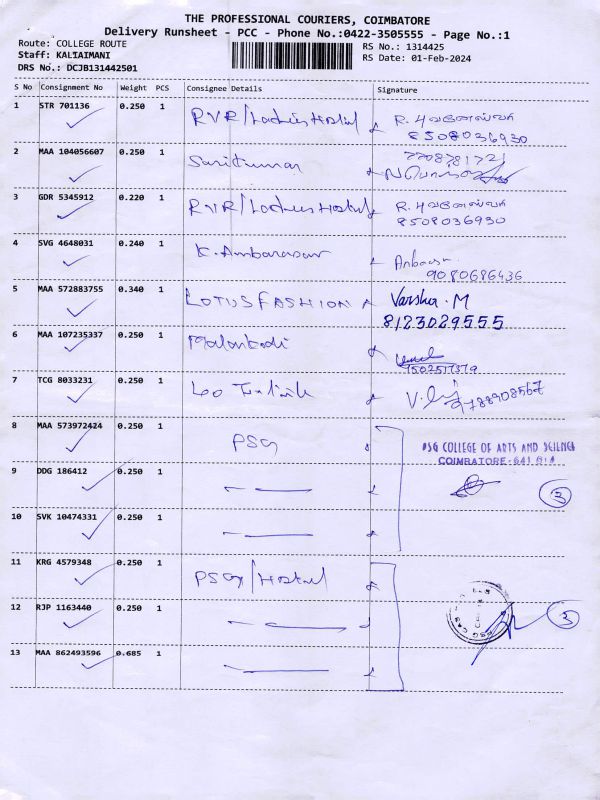 THE PROFESSIONAL COURIERS, COIMBATORE
Delivery Runsheet - PCC - Phone No.:0422-3505555 - Page No.:1
Route: COLLEGE ROUTE RS No.: 1314425
Staff: KALIAIMANI RS Date: 01-Feb-2024
DRS No.: DCJB131442501
S No Consignment No Weight PCS Consignee Details Signature
1 STR 701136 0.250 1 RVR/Ladies Hostel R.
8508036930
2 MAA 104056607 0.250 1
3 GDR 5345912 0.220 1 RVR/Ladies Hostel R.
8508036930
4 SVG 4648031 0.240 1 K. Ambarasan
9080686436
5 MAA 572883755 0.340 1 LOTUS FASHION Varsha. M
8123029555
6 MAA 107235337 0.250 1 Malarkodi
7 TCG 8033231 0.250 1 Leo
9788908567
8 MAA 573972424 0.250 1 PSG PSG COLLEGE OF ARTS AND SCIENCE
COIMBATORE-641 014
9 DDG 186412 0.250 1 3
10 SVK 10474331 0.250 1
11 KRG 4579348 0.250 1 PSG/Hostel
12 RJP 1163440 0.250 1 3
13 MAA 862493596 0.685 1